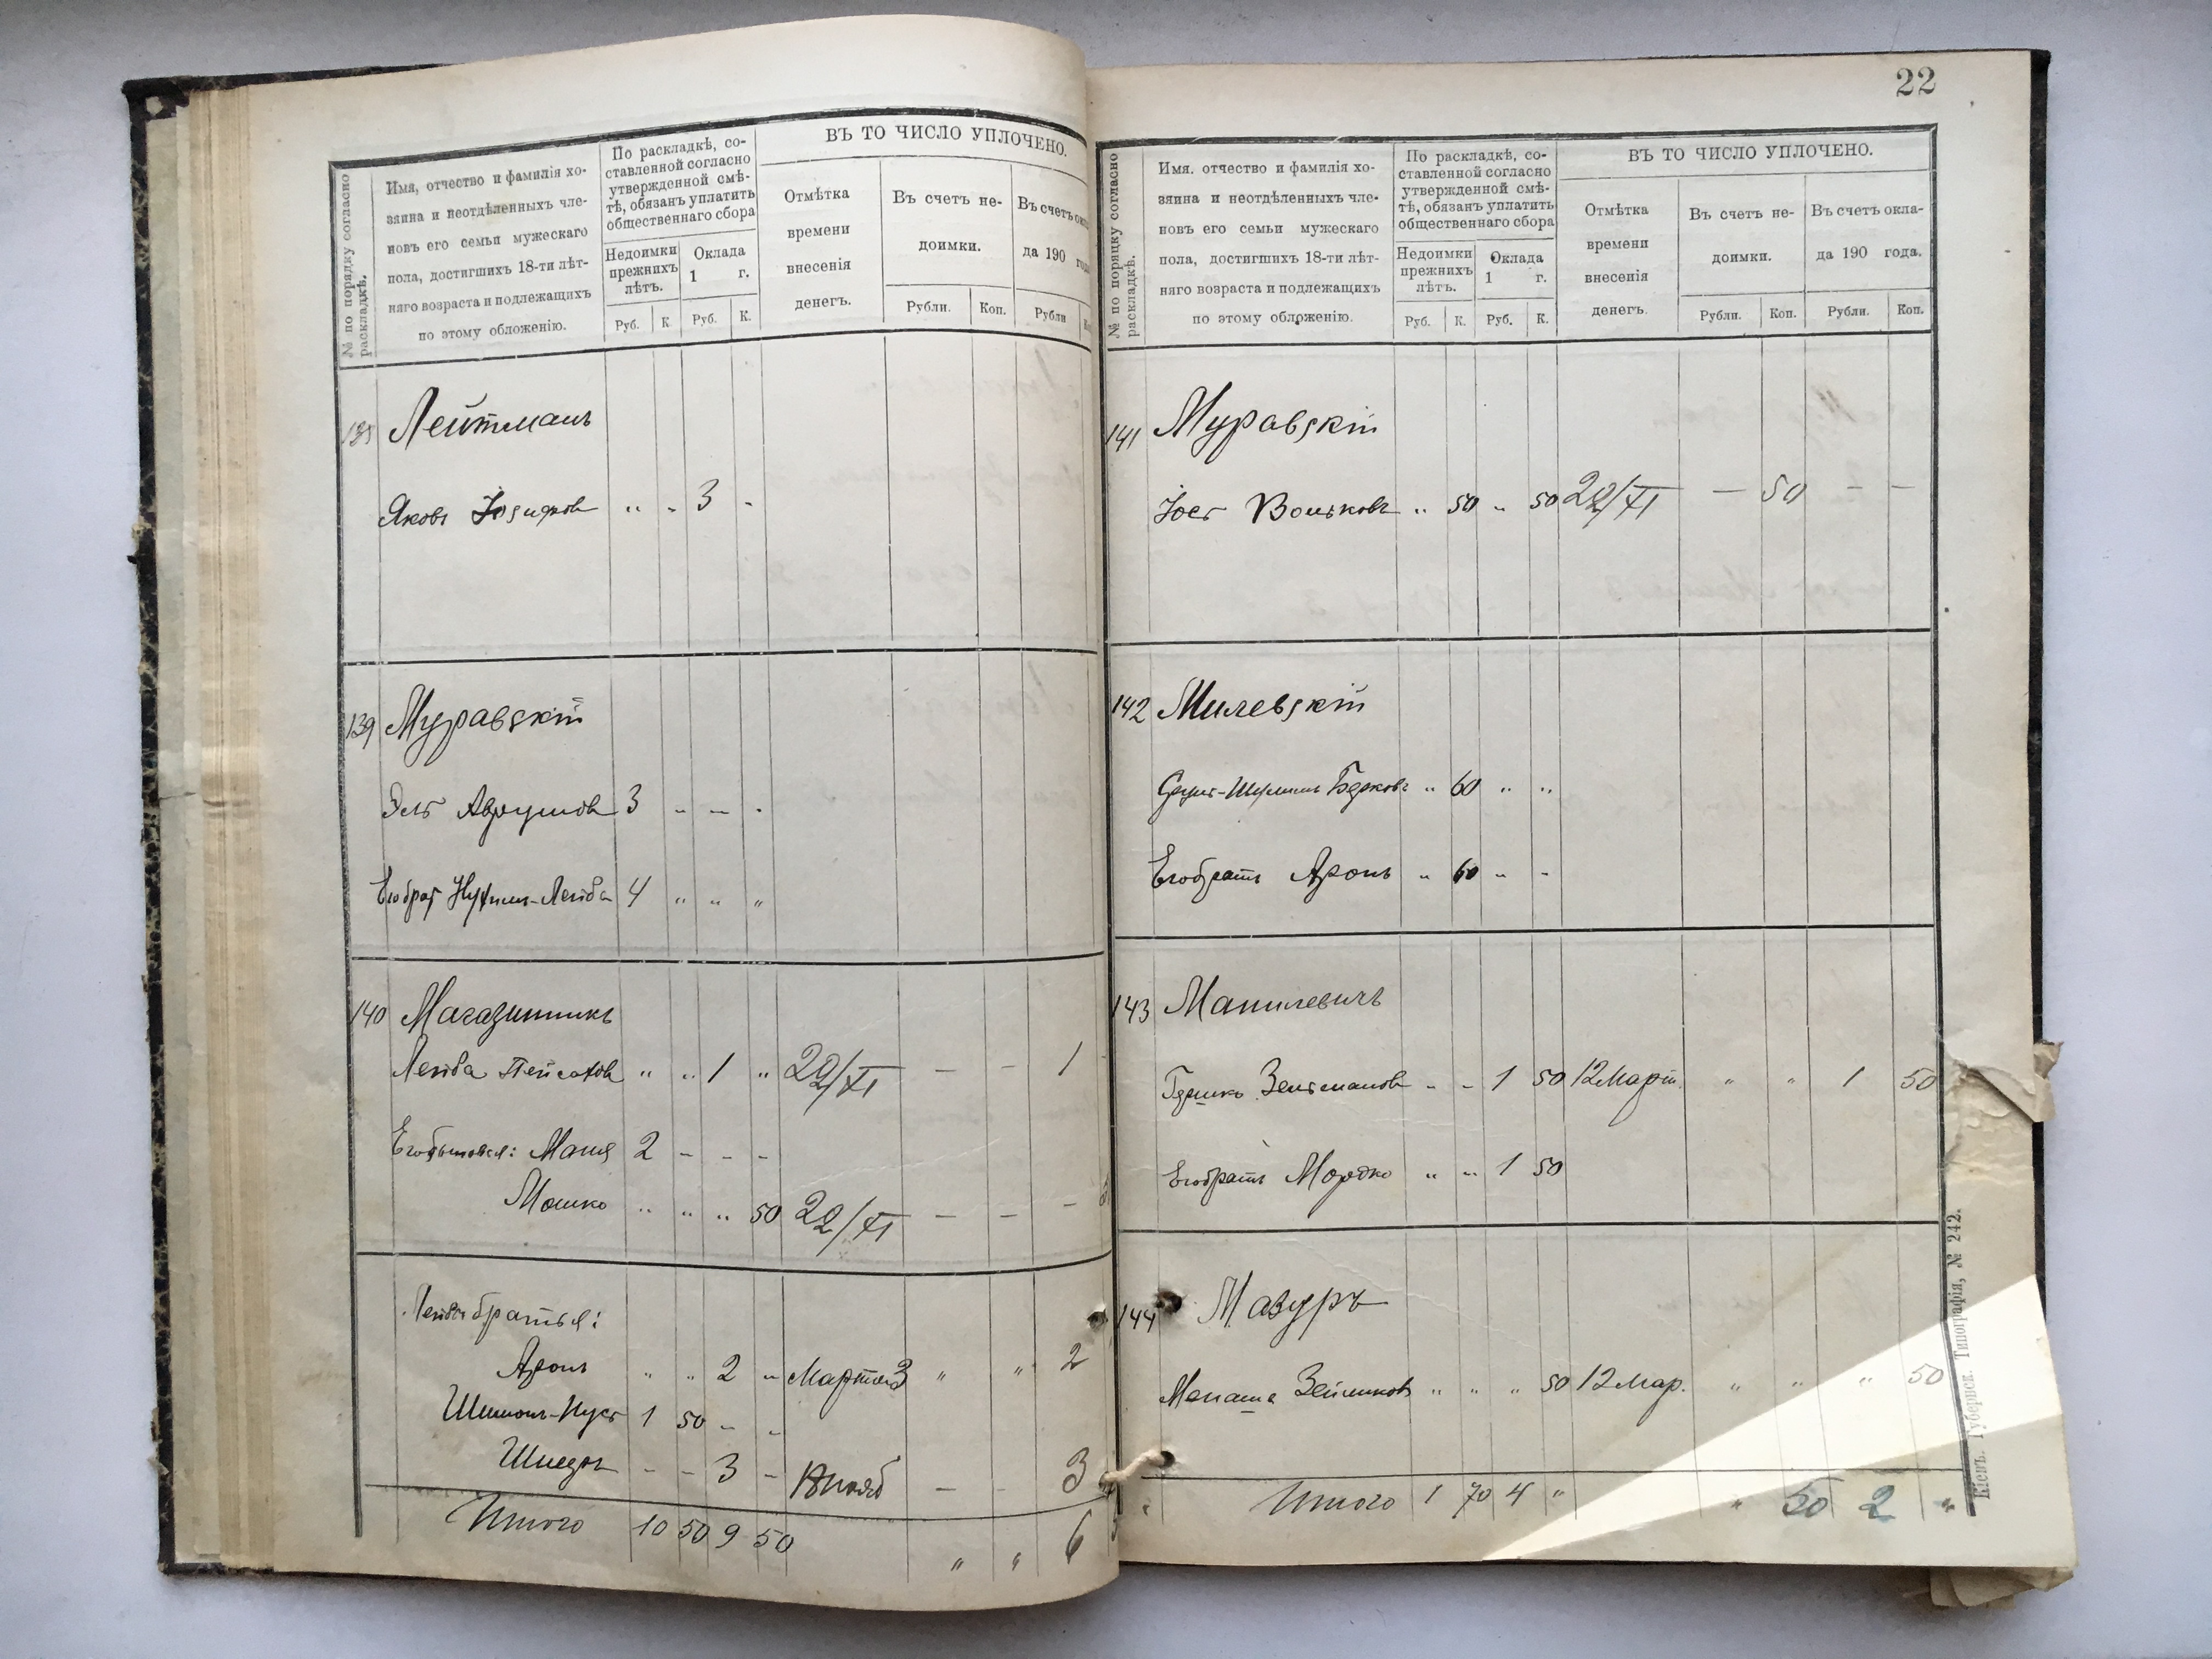 ВЪ ТО ЧИСЛО УПЛОЧЕНО.
№ по порядку согласно
раскладкѣ.
Имя, отчество и фамилія хо-
зяина и неотдѣленныхъ чле-
новъ его семьи мужескаго
пола, достигшихъ 18-ти лѣт-
няго возраста и подлежащихъ
по этому обложенію.
По раскладкѣ, со-
ставленной согласно
утвержденной смѣ-
тѣ, обязанъ уплатить
общественнаго сбора
Недоимки
прежнихъ
лѣтъ.
Оклада
1 г.
Руб. К. Руб. К.
Отмѣтка
времени
внесенія
денегъ.
Въ счетъ не-
доимки.
Рубли. Коп.
Въ счетъ
да 190
Рубли
Лейтман
Яковъ " " 3 -
139 Муравскій
Эль Аврумов 3 - - -
Его брат Нухим-Лейба 4 " " "
140 Магазинникъ
Лейба Пейсахов " " 1 " 22/XI - - 1
2 - - -
Мошко " " " 50 22/XI - - -
братья:
Аронъ " " 2 " Марта 3 " " 2
1 50 - -
- - 3 - - - 3
Итого 10 50 9 50 " " 6
22
ВЪ ТО ЧИСЛО УПЛОЧЕНО.
№ по порядку согласно
раскладкѣ.
Имя. отчество и фамилія хо-
зяина и неотдѣленныхъ чле-
новъ его семьи мужескаго
пола, достигшихъ 18-ти лѣт-
няго возраста и подлежащихъ
по этому обложенію.
По раскладкѣ, со-
ставленной согласно
утвержденной смѣ-
тѣ, обязанъ уплатить
общественнаго сбора
Недоимки
прежнихъ
лѣтъ.
Оклада
1 г.
Руб. К. Руб. К.
Отмѣтка
времени
внесенія
денегъ.
Въ счетъ не-
доимки.
Рубли. Коп.
Въ счетъ окла-
да 190 года.
Рубли. Коп.
141 Муравскій
Вольковъ " 50 " 50 22/XI - 50 - -
142 Милевскій
Берковъ " 60 " "
Его братъ Аронъ " 60 " -
143 Манилевичъ
Гершко Зельманов " - 1 50 12 Март. " " 1 50
Его братъ Мордко " " 1 50
144 Мазуръ
Менаша " " " 50 12 Мар. " " " 50
Итого 1 70 4 " " 50 2 "
Кіевъ. Губернск. Типографія, № 242.